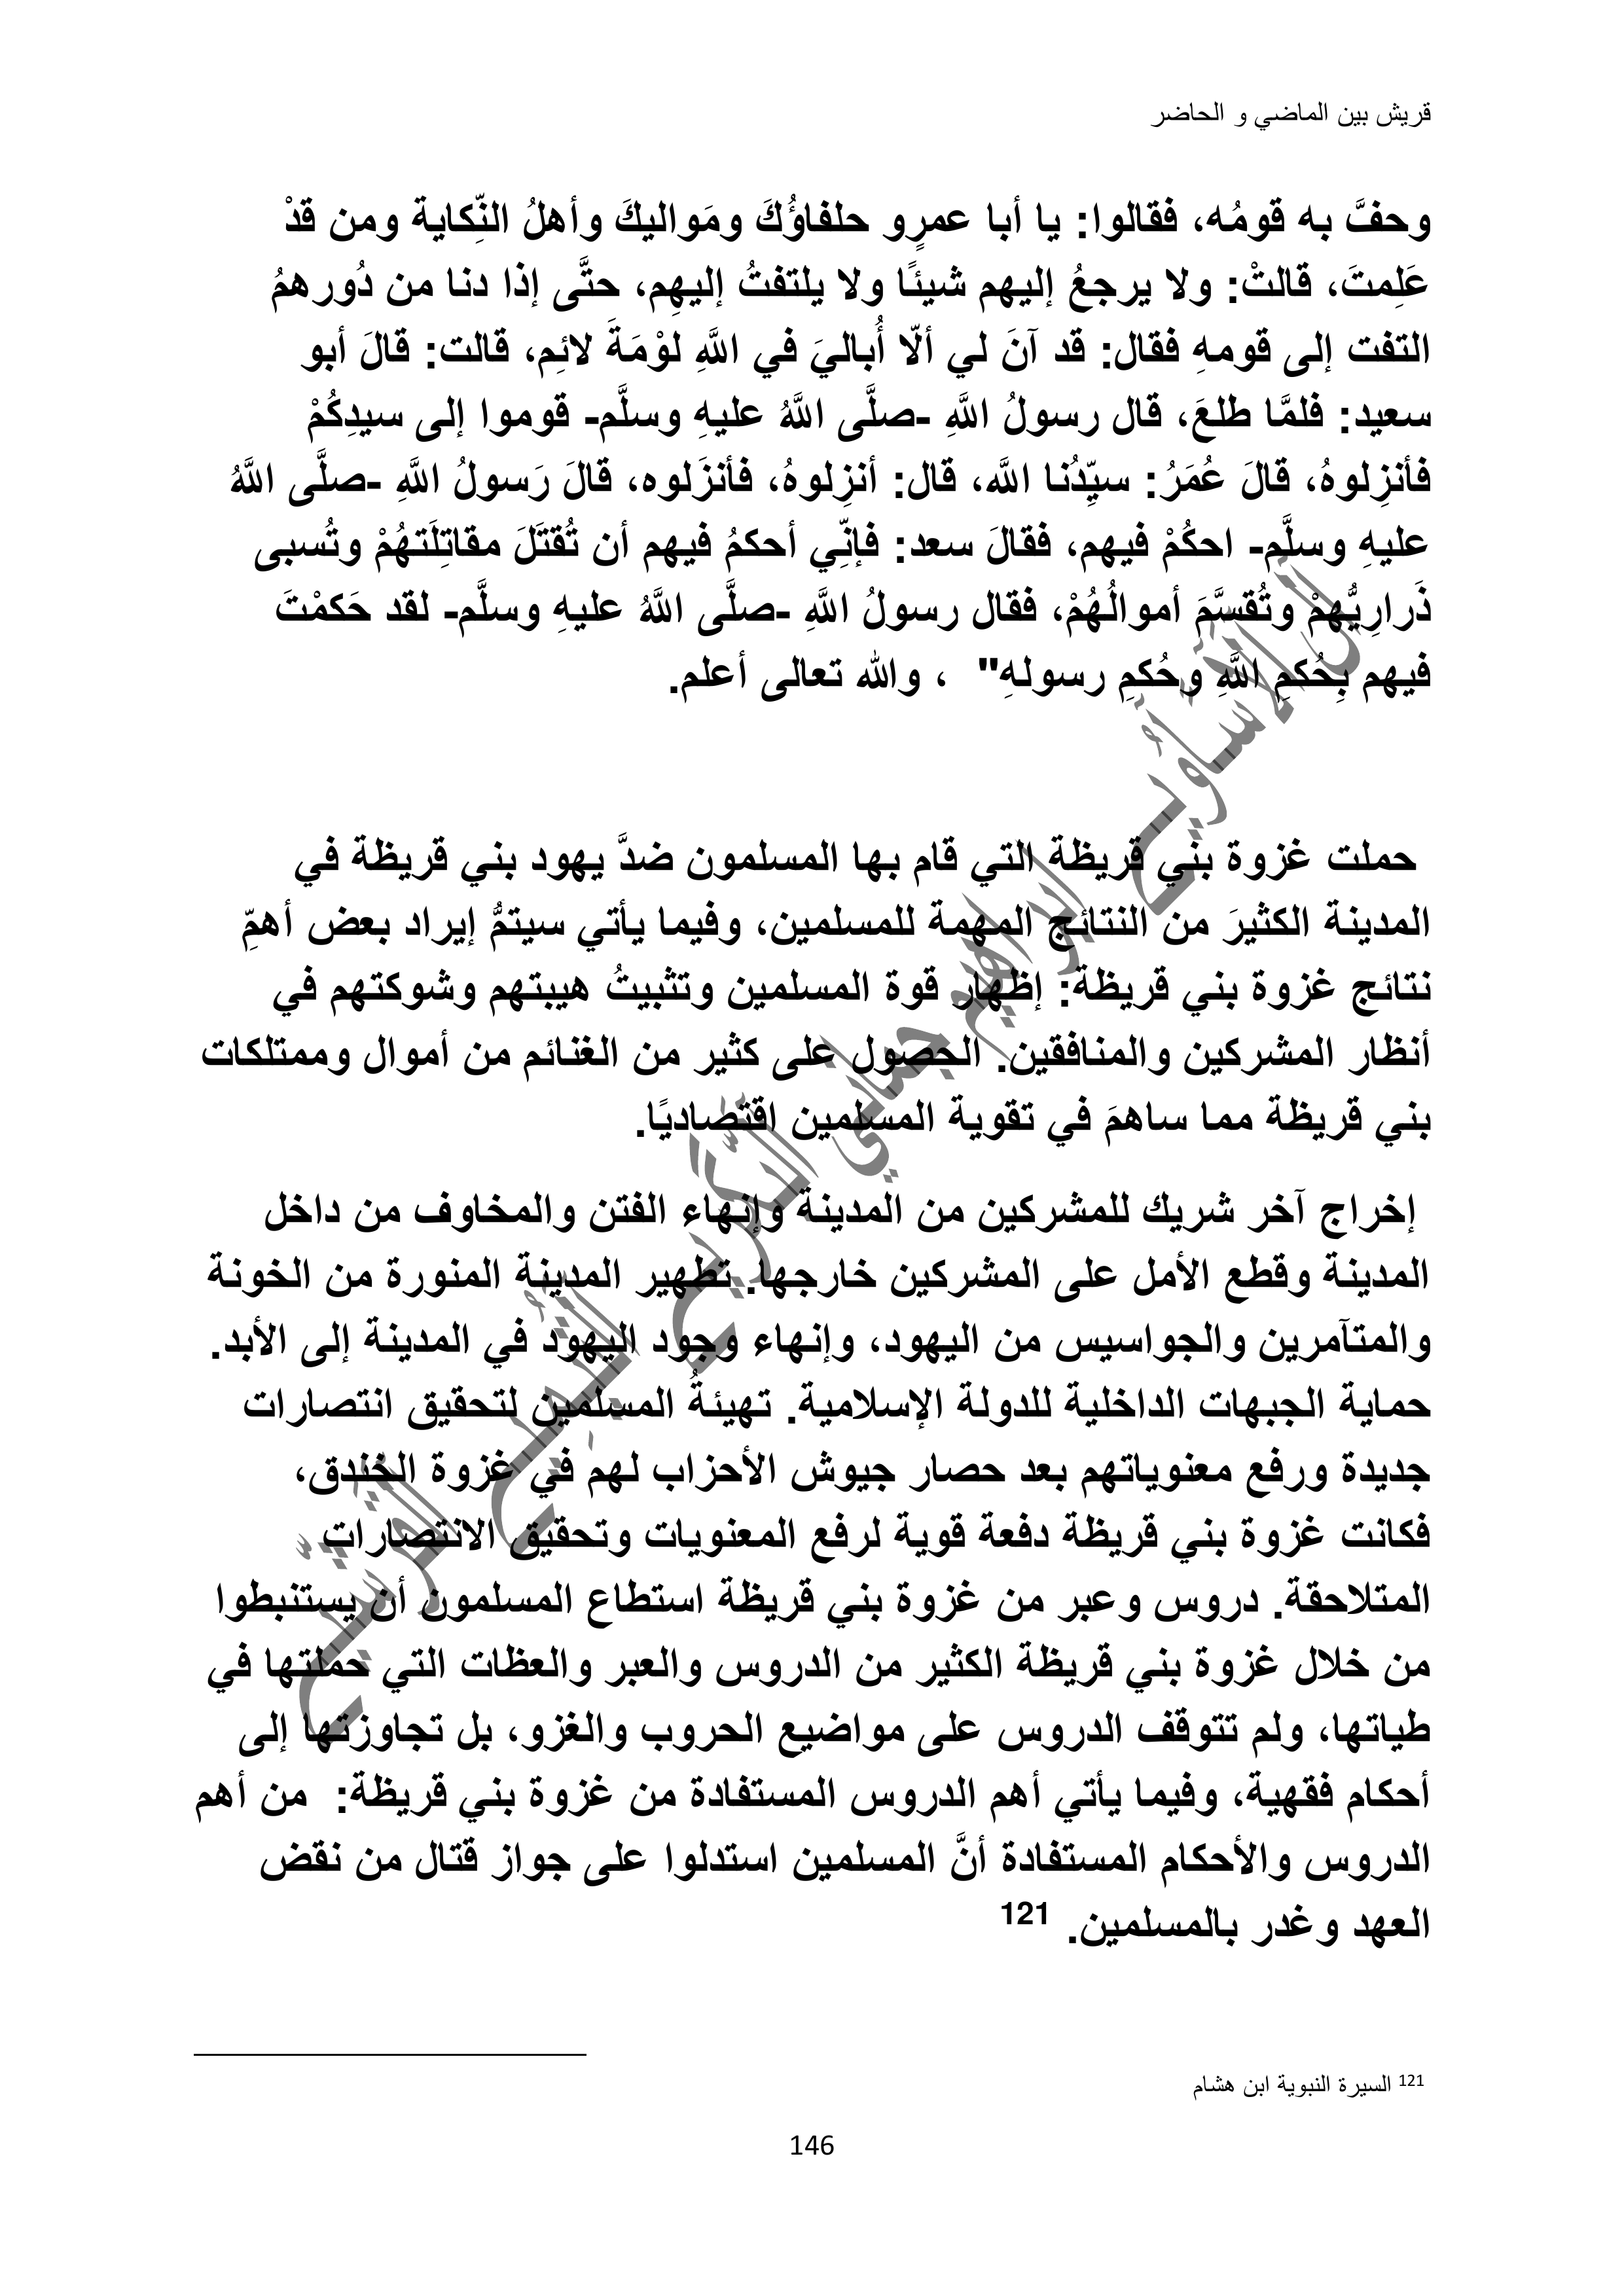 قريش بين الماضي و الحاضر
وحفَّ به قومُه، فقالوا: يا أبا عمرٍو حلفاؤُكَ ومَواليكَ وأهلُ النِّكاية ومن قدْ
عَلِمتَ، قالتْ: ولا يرجعُ إليهم شيئًا ولا يلتفتُ إليهِم، حتَّى إذا دنا من دُورهمُ
التفت إلى قومهِ فقال: قد آنَ لي ألّا أُباليَ في اللَّهِ لوْمَةَ لائِم، قالت: قالَ أبو
سعيد: فلمَّا طلعَ، قال رسولُ اللَّهِ -صلَّى اللَّهُ عليهِ وسلَّم- قوموا إلى سيدِكُمْ
فأنزِلوهُ، قالَ عُمَرُ: سيِّدُنا الله، قال: أنزِلوهُ، فأنزَلوه، قالَ رَسولُ اللَّهِ -صلَّى اللَّهُ
عليهِ وسلَّم- احكُمْ فيهم، فقالَ سعد: فإنِّي أحكمُ فيهم أن تُقتَلَ مقاتِلَتهُمْ وتُسبى
ذَرارِيُّهمْ وتُقسَّمَ أموالُهُمْ، فقال رسولُ اللَّهِ -صلَّى اللَّهُ عليهِ وسلَّم- لقد حَكمْتَ
فيهم بِحُكمِ اللَّهِ وحُكمِ رسولهِ" ، والله تعالى أعلم.
حملت غزوة بني قريظة التي قام بها المسلمون ضدَّ يهود بني قريظة في
المدينة الكثيرَ من النتائج المهمة للمسلمين، وفيما يأتي سيتمُّ إيراد بعض أهمِّ
نتائج غزوة بني قريظة: إظهار قوة المسلمين وتثبيتُ هيبتهم وشوكتهم في
أنظار المشركين والمنافقين. الحصول على كثير من الغنائم من أموال وممتلكات
بني قريظة مما ساهمَ في تقوية المسلمين اقتصاديًا.
إخراج آخر شريك للمشركين من المدينة وإنهاء الفتن والمخاوف من داخل
المدينة وقطع الأمل على المشركين خارجها. تطهير المدينة المنورة من الخونة
والمتآمرين والجواسيس من اليهود، وإنهاء وجود اليهود في المدينة إلى الأبد.
حماية الجبهات الداخلية للدولة الإسلامية. تهيئةُ المسلمين لتحقيق انتصارات
جديدة ورفع معنوياتهم بعد حصار جيوش الأحزاب لهم في غزوة الخندق،
فكانت غزوة بني قريظة دفعة قوية لرفع المعنويات وتحقيق الانتصارات
المتلاحقة. دروس وعبر من غزوة بني قريظة استطاع المسلمون أن يستنبطوا
من خلال غزوة بني قريظة الكثير من الدروس والعبر والعظات التي حملتها في
طياتها، ولم تتوقف الدروس على مواضيع الحروب والغزو، بل تجاوزتها إلى
أحكام فقهية، وفيما يأتي أهم الدروس المستفادة من غزوة بني قريظة: من أهم
الدروس والأحكام المستفادة أنَّ المسلمين استدلوا على جواز قتال من نقض
العهد وغدر بالمسلمين. 121
121 السيرة النبوية ابن هشام
146